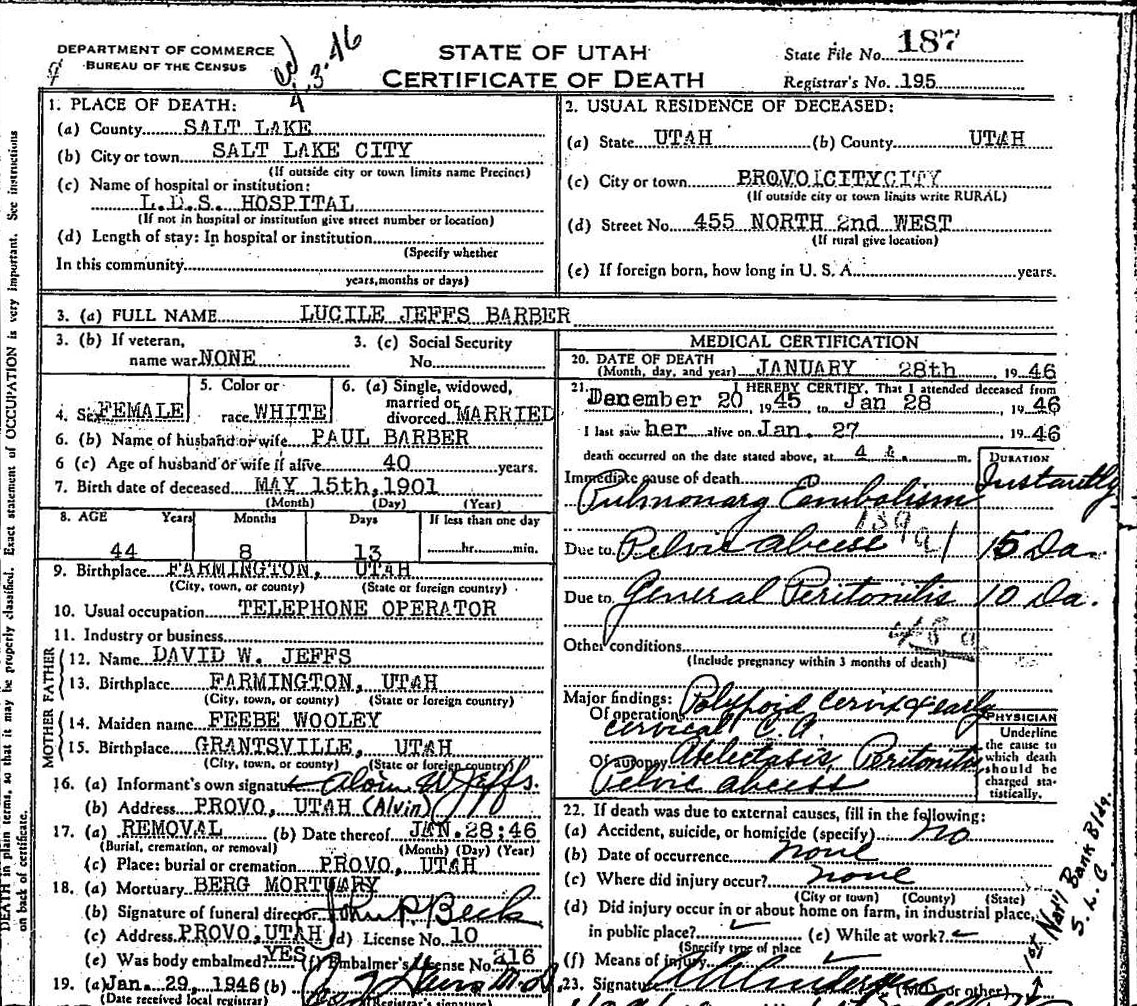 DEPARTMENT OF COMMERCE
BUREAU OF THE CENSUS
STATE OF UTAH
CERTIFICATE OF DEATH
State File No. 187
Registrar's No. 195
1. PLACE OF DEATH:
(a) County SALT LAKE
(b) City or town SALT LAKE CITY
(If outside city or town limits name Precinct)
(c) Name of hospital or institution:
L.D.S. HOSPITAL
(If not in hospital or institution give street number or location)
(d) Length of stay: In hospital or institution
(Specify whether
In this community
years, months or days)
2. USUAL RESIDENCE OF DECEASED:
(a) State UTAH (b) County UTAH
(c) City or town PROVO CITY CITY
(If outside city or town limits write RURAL)
(d) Street No. 455 NORTH 2nd WEST
(If rural give location)
(e) If foreign born, how long in U. S. A. years.
3. (a) FULL NAME LUCILE JEFFS BARBER
3. (b) If veteran,
name war NONE
3. (c) Social Security
No.
4. Sex FEMALE
5. Color or
race WHITE
6. (a) Single, widowed,
married or
divorced MARRIED
6. (b) Name of husband or wife PAUL BARBER
6 (c) Age of husband or wife if alive 40 years.
7. Birth date of deceased MAY 15th, 1901
(Month) (Day) (Year)
8. AGE Years Months Days If less than one day
44 8 13 hr. min.
9. Birthplace FARMINGTON, UTAH
(City, town, or county) (State or foreign country)
10. Usual occupation TELEPHONE OPERATOR
11. Industry or business
FATHER
12. Name DAVID W. JEFFS
13. Birthplace FARMINGTON, UTAH
(City, town, or county) (State or foreign country)
MOTHER
14. Maiden name FEEBE WOOLEY
15. Birthplace GRANTSVILLE, UTAH
(City, town, or county) (State or foreign country)
16. (a) Informant's own signature Alvin W Jeffs.
(b) Address PROVO, UTAH (Alvin)
17. (a) REMOVAL (b) Date thereof JAN. 28:46
(Burial, cremation, or removal) (Month) (Day) (Year)
(c) Place: burial or cremation PROVO, UTAH
18. (a) Mortuary BERG MORTUARY
(b) Signature of funeral director John P. Beck
(c) Address PROVO, UTAH (d) License No. 10
(e) Was body embalmed? YES (f) Embalmer's License No. 216
19. (a) Jan. 29, 1946 (b) M.D.
(Date received local registrar) (Registrar's signature)
MEDICAL CERTIFICATION
20. DATE OF DEATH
(Month, day, and year) JANUARY 28th, 19 46
21. I HEREBY CERTIFY, That I attended deceased from
December 20, 19 45 to Jan 28, 19 46
I last saw her alive on Jan. 27 19 46
death occurred on the date stated above, at 4 m.
DURATION
Immediate cause of death Instantly
Pulmonary Embolism
139a
Due to Pelvic abcess 15 Da.
Due to General Peritonitis 10 Da.
48a
Other conditions
(Include pregnancy within 3 months of death)
Major findings: Polypoid cervix & early
Of operations cervical C.A.
Of autopsy Atelectasis, Peritonitis
Pelvic abcess
PHYSICIAN
Underline
the cause to
which death
should be
charged sta-
tistically.
22. If death was due to external causes, fill in the following:
(a) Accident, suicide, or homicide (specify) no
(b) Date of occurrence none
(c) Where did injury occur? none
(City or town) (County) (State)
(d) Did injury occur in or about home on farm, in industrial place,
in public place? (e) While at work?
(Specify type of place
(f) Means of injury
23. Signature (M.D. or other)
1st Nat'l Bank Bldg.
S. L. C.
DEATH in plain terms, so that it may be properly classified. Exact statement of OCCUPATION is very important. See instructions
on back of certificate.